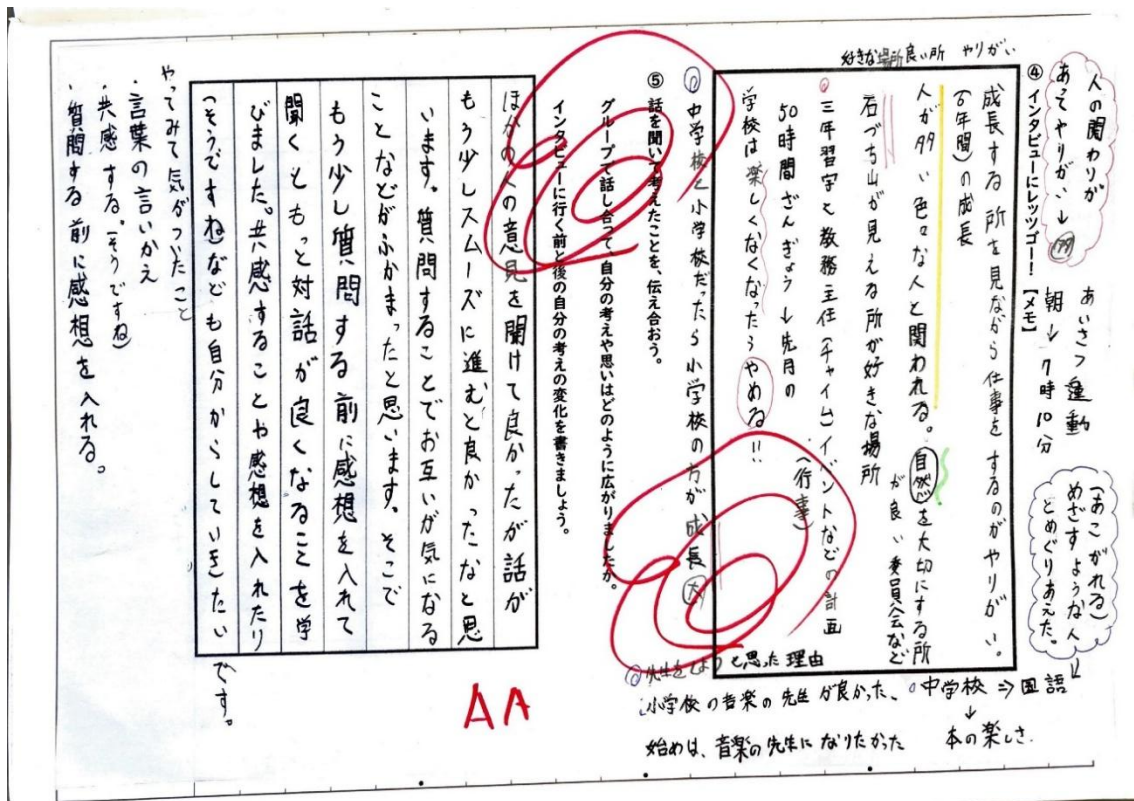 人の関わりが
あってやりがい→
あいさつ運動
朝→7時10分
(あこがれる)
めざすような人
とめぐりあえた。
④ インタビューにレッツゴー!【メモ】
好きな場所 良い所 やりがい
成長する所を見ながら仕事をするのがやりがい。
(6年間)の成長
人が 色々な人と関われる。自然を大切にする所
が良い 委員会など
石づち山が見える所が好きな場所
三年習字と教務主任(チャイム)イベントなどの計画
(行事)
50時間ざんぎょう→先月の
学校は楽しくなくなったらやめる!!
中学校と小学校だったら小学校の方が成長大
先生をしようと思った理由
小学校の音楽の先生が良かった、
中学校⇒国語
↓
本の楽しさ
始めは、音楽の先生になりたかった
⑤ 話を聞いて考えたことを、伝え合おう。
グループで話し合って、自分の考えや思いはどのように広がりましたか。
インタビューに行く前と後の自分の考えの変化を書きましょう。
ほかの人の意見を聞けて良かったが話が
もう少しスムーズに進むと良かったなと思
います。質問することでお互いが気になる
ことなどがふかまったと思います。そこで
もう少し質問する前に感想を入れて
聞くともっと対話が良くなることを学
びました。共感することや感想を入れたり
(そうですね)なども自分からしていきたい
です。
AA
やってみて気がついたこと
・言葉の言いかえ
・共感する。(そうですね)
・質問する前に感想を入れる。